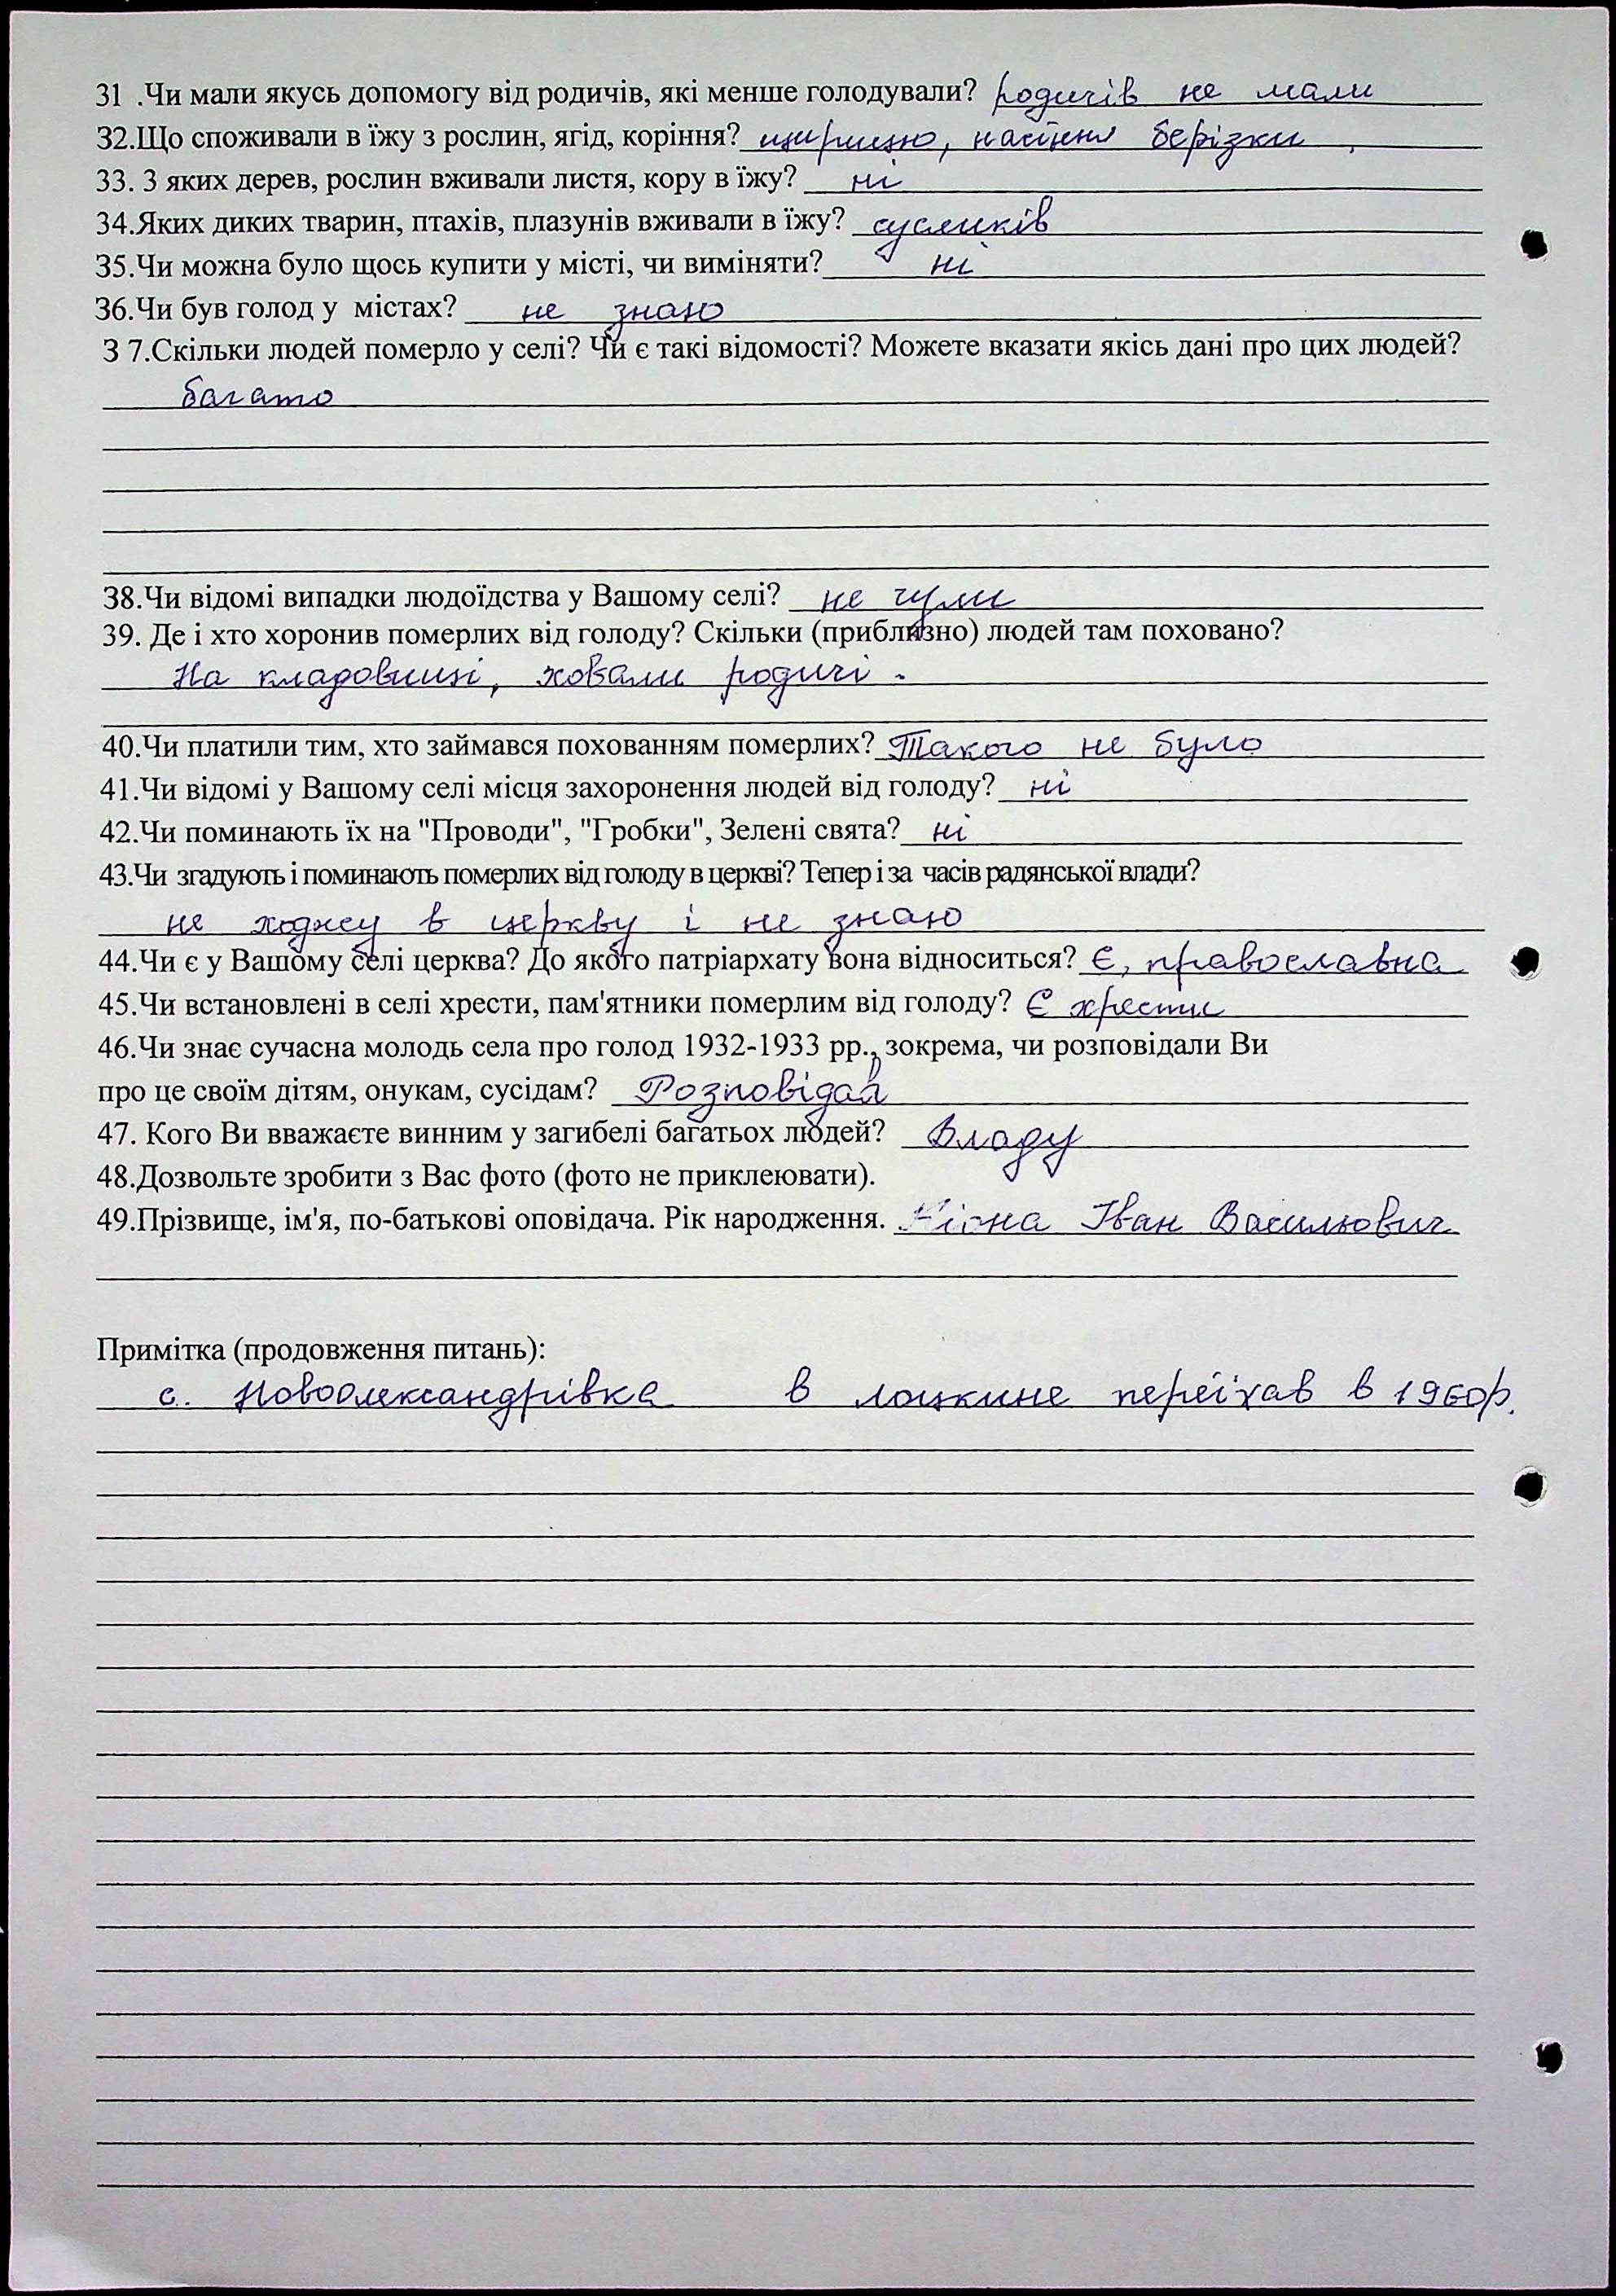 31 .Чи мали якусь допомогу від родичів, які менше голодували? родичів не мали
32.Що споживали в їжу з рослин, ягід, коріння? щирицю, насіння берізки
33. З яких дерев, рослин вживали листя, кору в їжу? ні
34.Яких диких тварин, птахів, плазунів вживали в їжу? сусликів
35.Чи можна було щось купити у місті, чи виміняти? ні
36.Чи був голод у містах? не знаю
3 7.Скільки людей померло у селі? Чи є такі відомості? Можете вказати якісь дані про цих людей?
багато
38.Чи відомі випадки людоїдства у Вашому селі? не чули
39. Де і хто хоронив померлих від голоду? Скільки (приблизно) людей там поховано?
На кладовищі, ховали родичі.
40.Чи платили тим, хто займався похованням померлих? Такого не було
41.Чи відомі у Вашому селі місця захоронення людей від голоду? ні
42.Чи поминають їх на "Проводи", "Гробки", Зелені свята? ні
43.Чи згадують і поминають померлих від голоду в церкві? Тепер і за часів радянської влади?
не ходжу в церкву і не знаю
44.Чи є у Вашому селі церква? До якого патріархату вона відноситься? Є, православна
45.Чи встановлені в селі хрести, пам'ятники померлим від голоду? Є хрести
46.Чи знає сучасна молодь села про голод 1932-1933 рр., зокрема, чи розповідали Ви
про це своїм дітям, онукам, сусідам? Розповідав
47. Кого Ви вважаєте винним у загибелі багатьох людей? Владу
48.Дозвольте зробити з Вас фото (фото не приклеювати).
49.Прізвище, ім'я, по-батькові оповідача. Рік народження. Іван Васильович
Примітка (продовження питань):
с. Новоолександрівка в Лоцкине переїхав в 1960р.